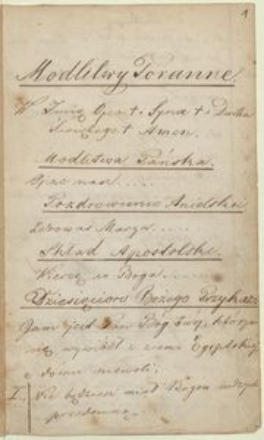 1
Modlitwy Poranne.
W Imię Ojca † Syna † i Ducha
Świętego † Amen.
Modlitwa Pańska.
Ojcze nasz.....
Pozdrowienie Anielskie
Zdrowaś Marya.....
Skład Apostolski.
Wierzę w Boga.....
Dziesięcioro Bożego Przykaz.
Jam jest Pan Bóg Twój, którym
cię wywiódł z ziemi Egipskiej
z domu niewoli.
I. Nie będziesz miał Bogów innych
przedemną.